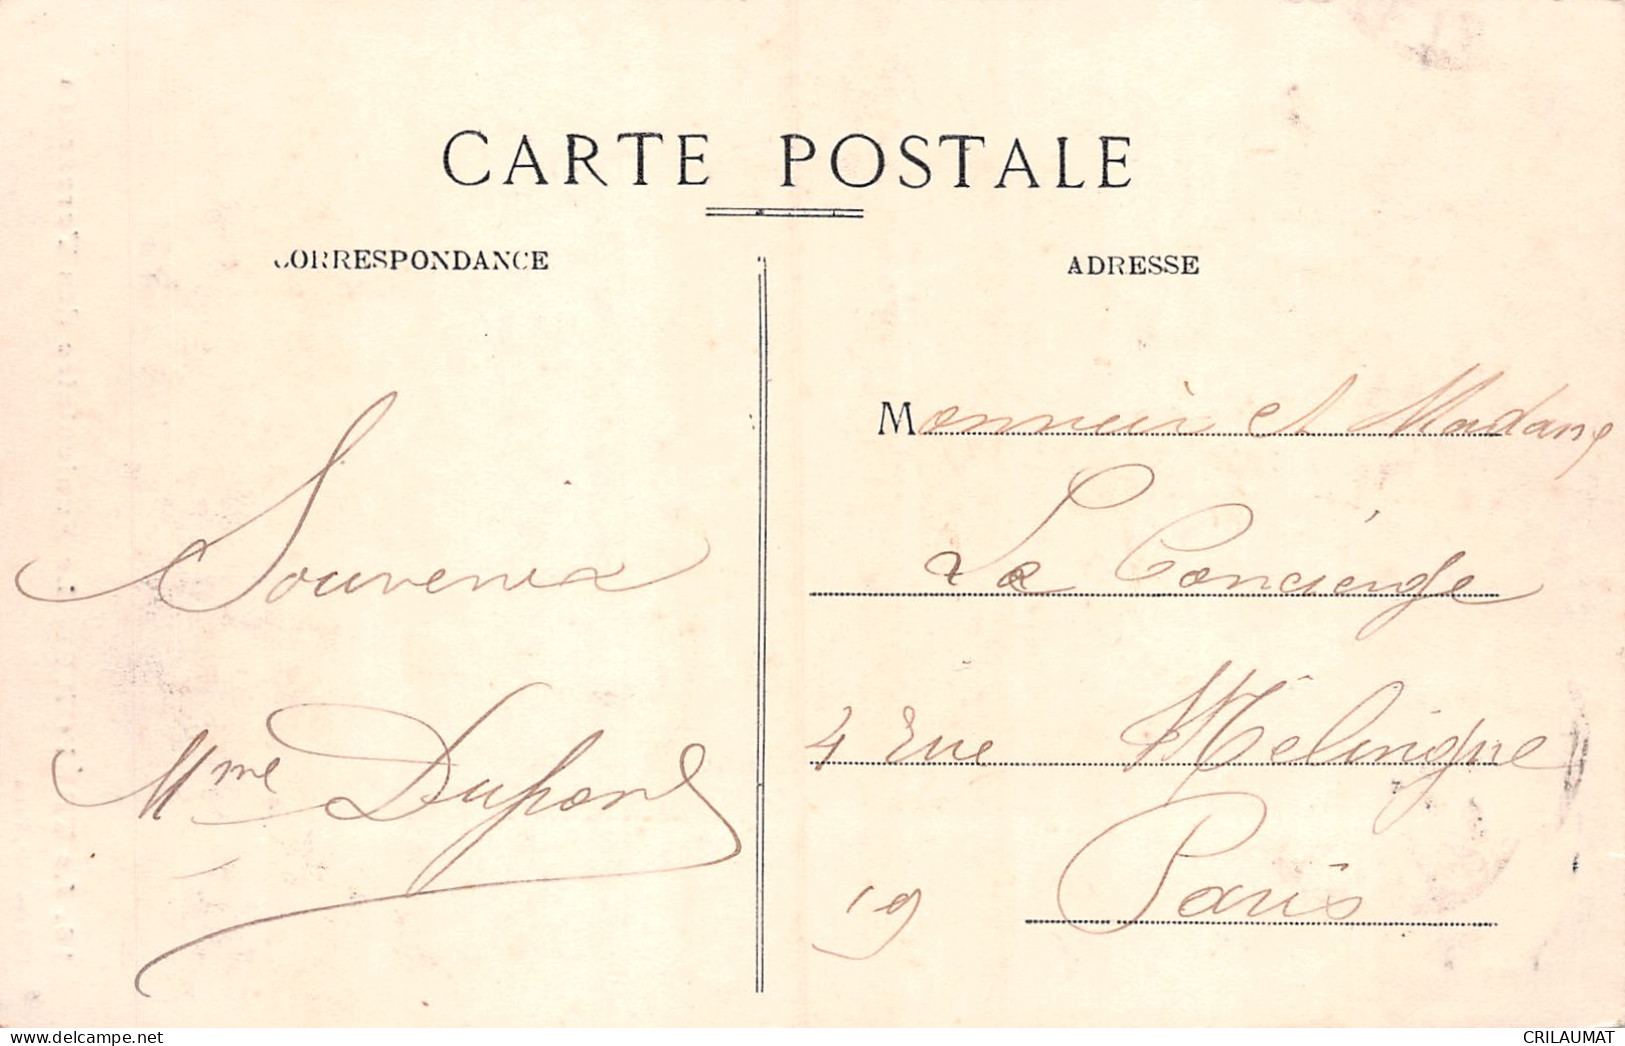 CARTE POSTALE
CORRESPONDANCE
ADRESSE
Souvenir
Mme Dupond
Monsieur et Madame
Le Concierge
4 rue Mélingue
Paris
19
www.delcampe.net
CRILAUMAT